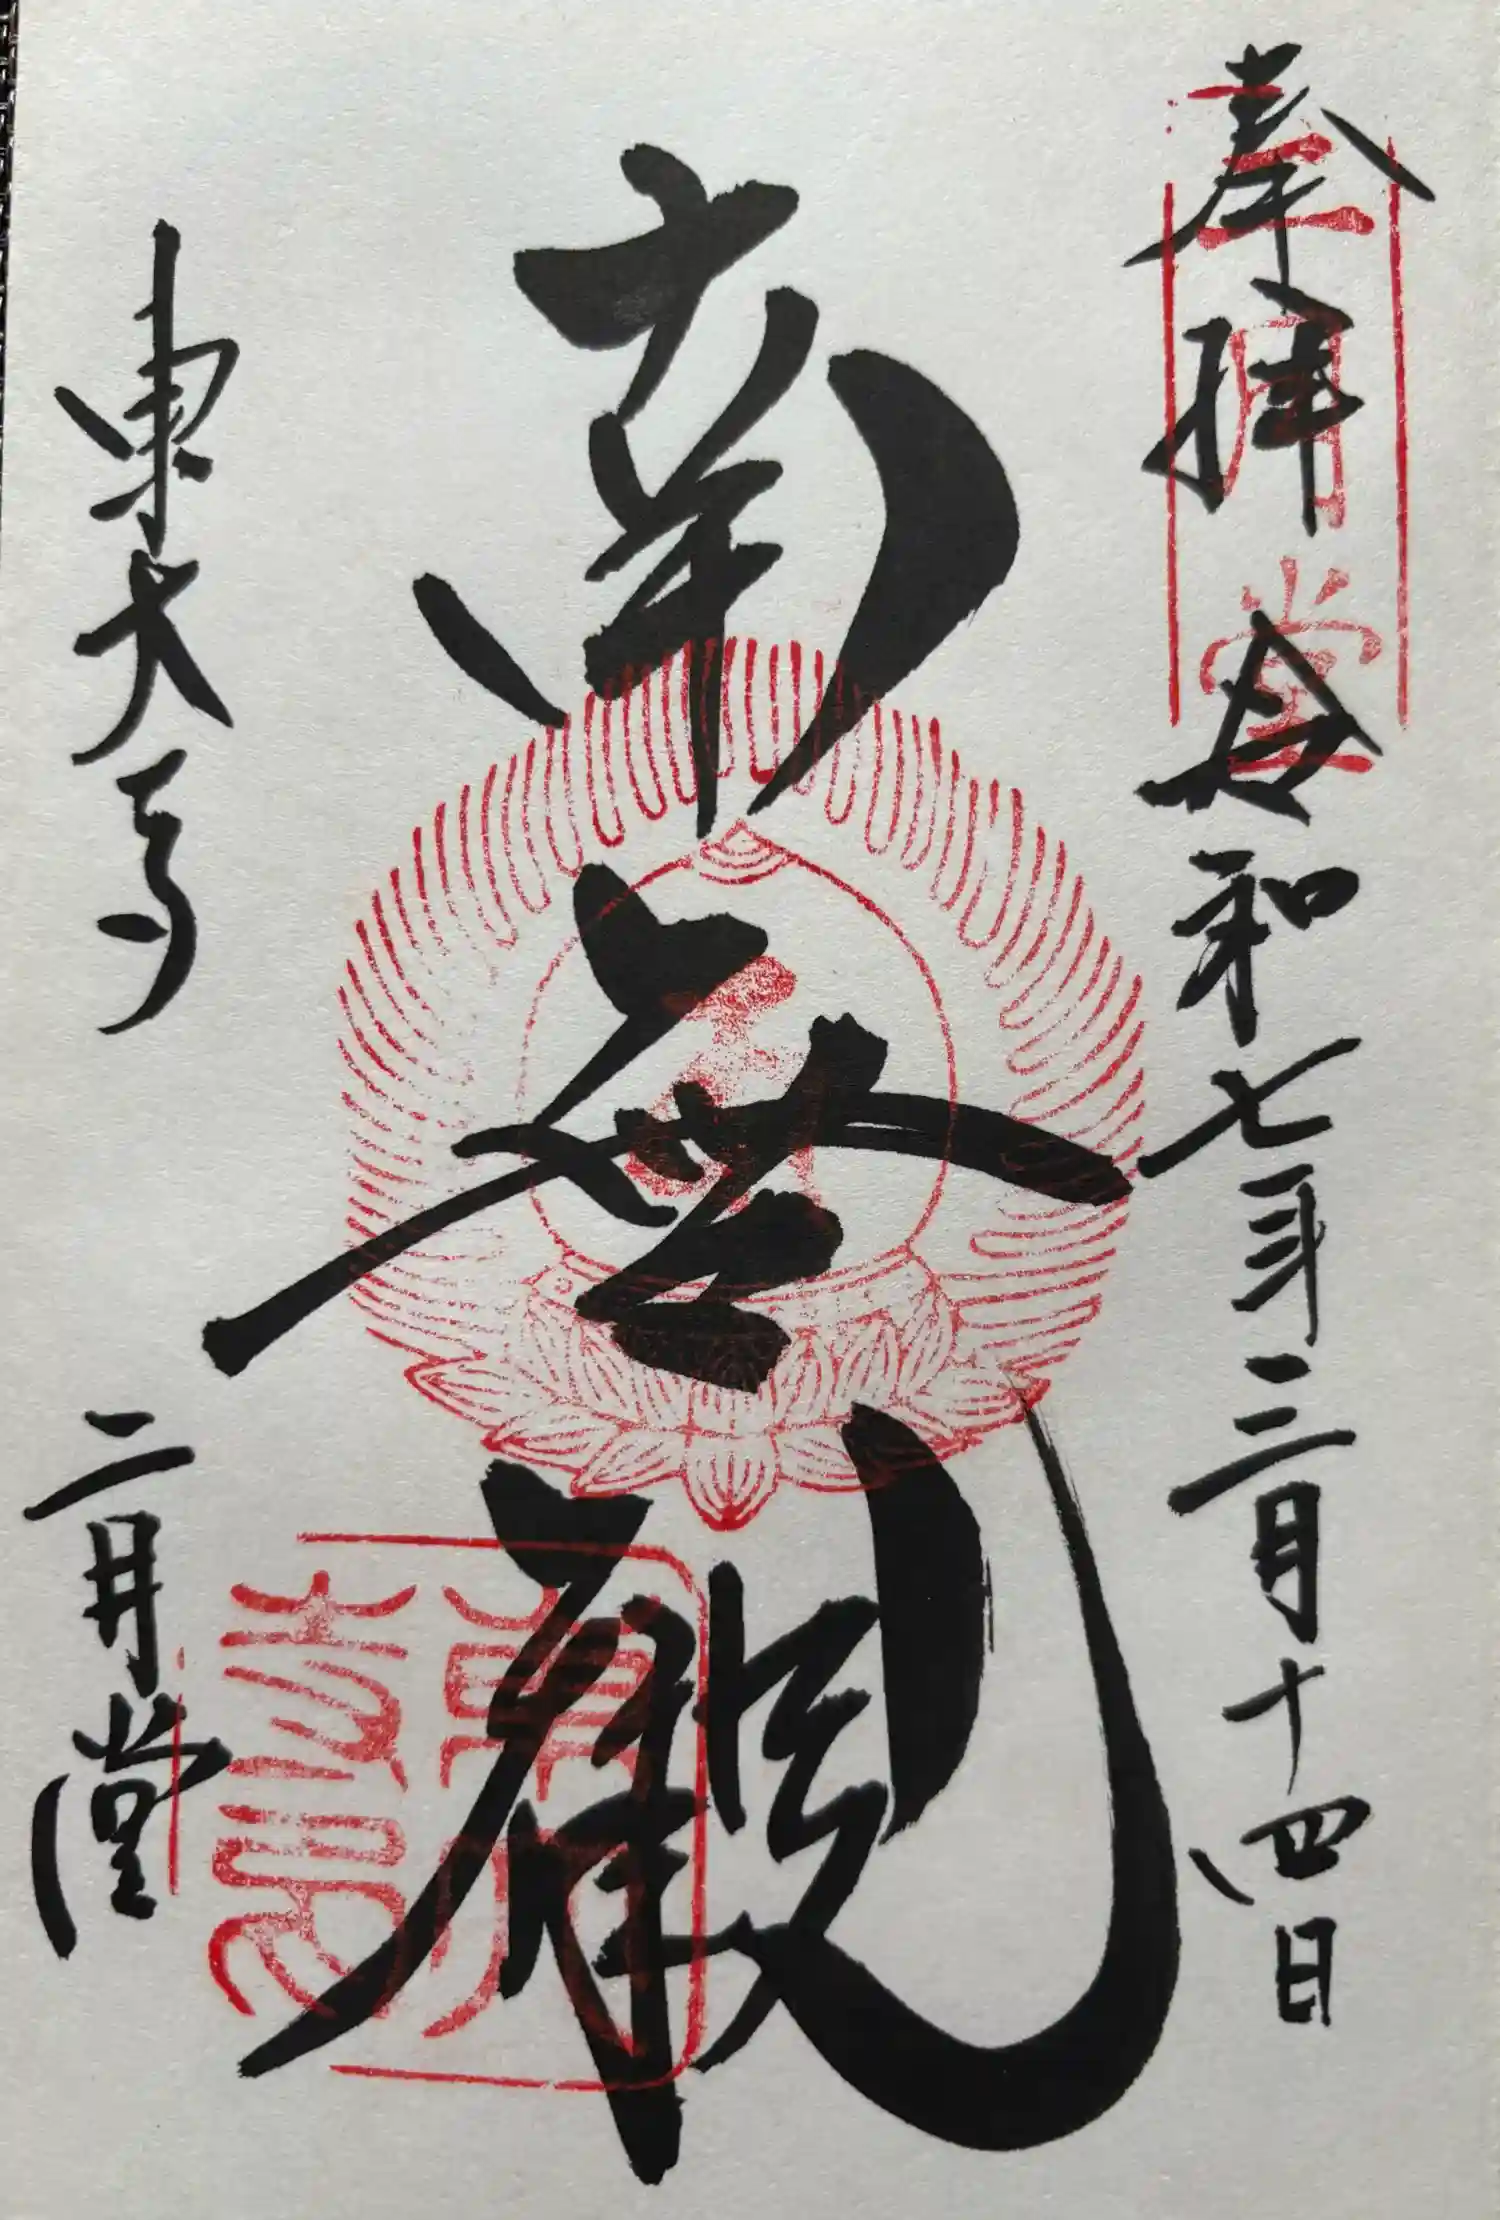 奉拝 令和七年三月十四日
二月堂
南無観
東大寺 二月堂